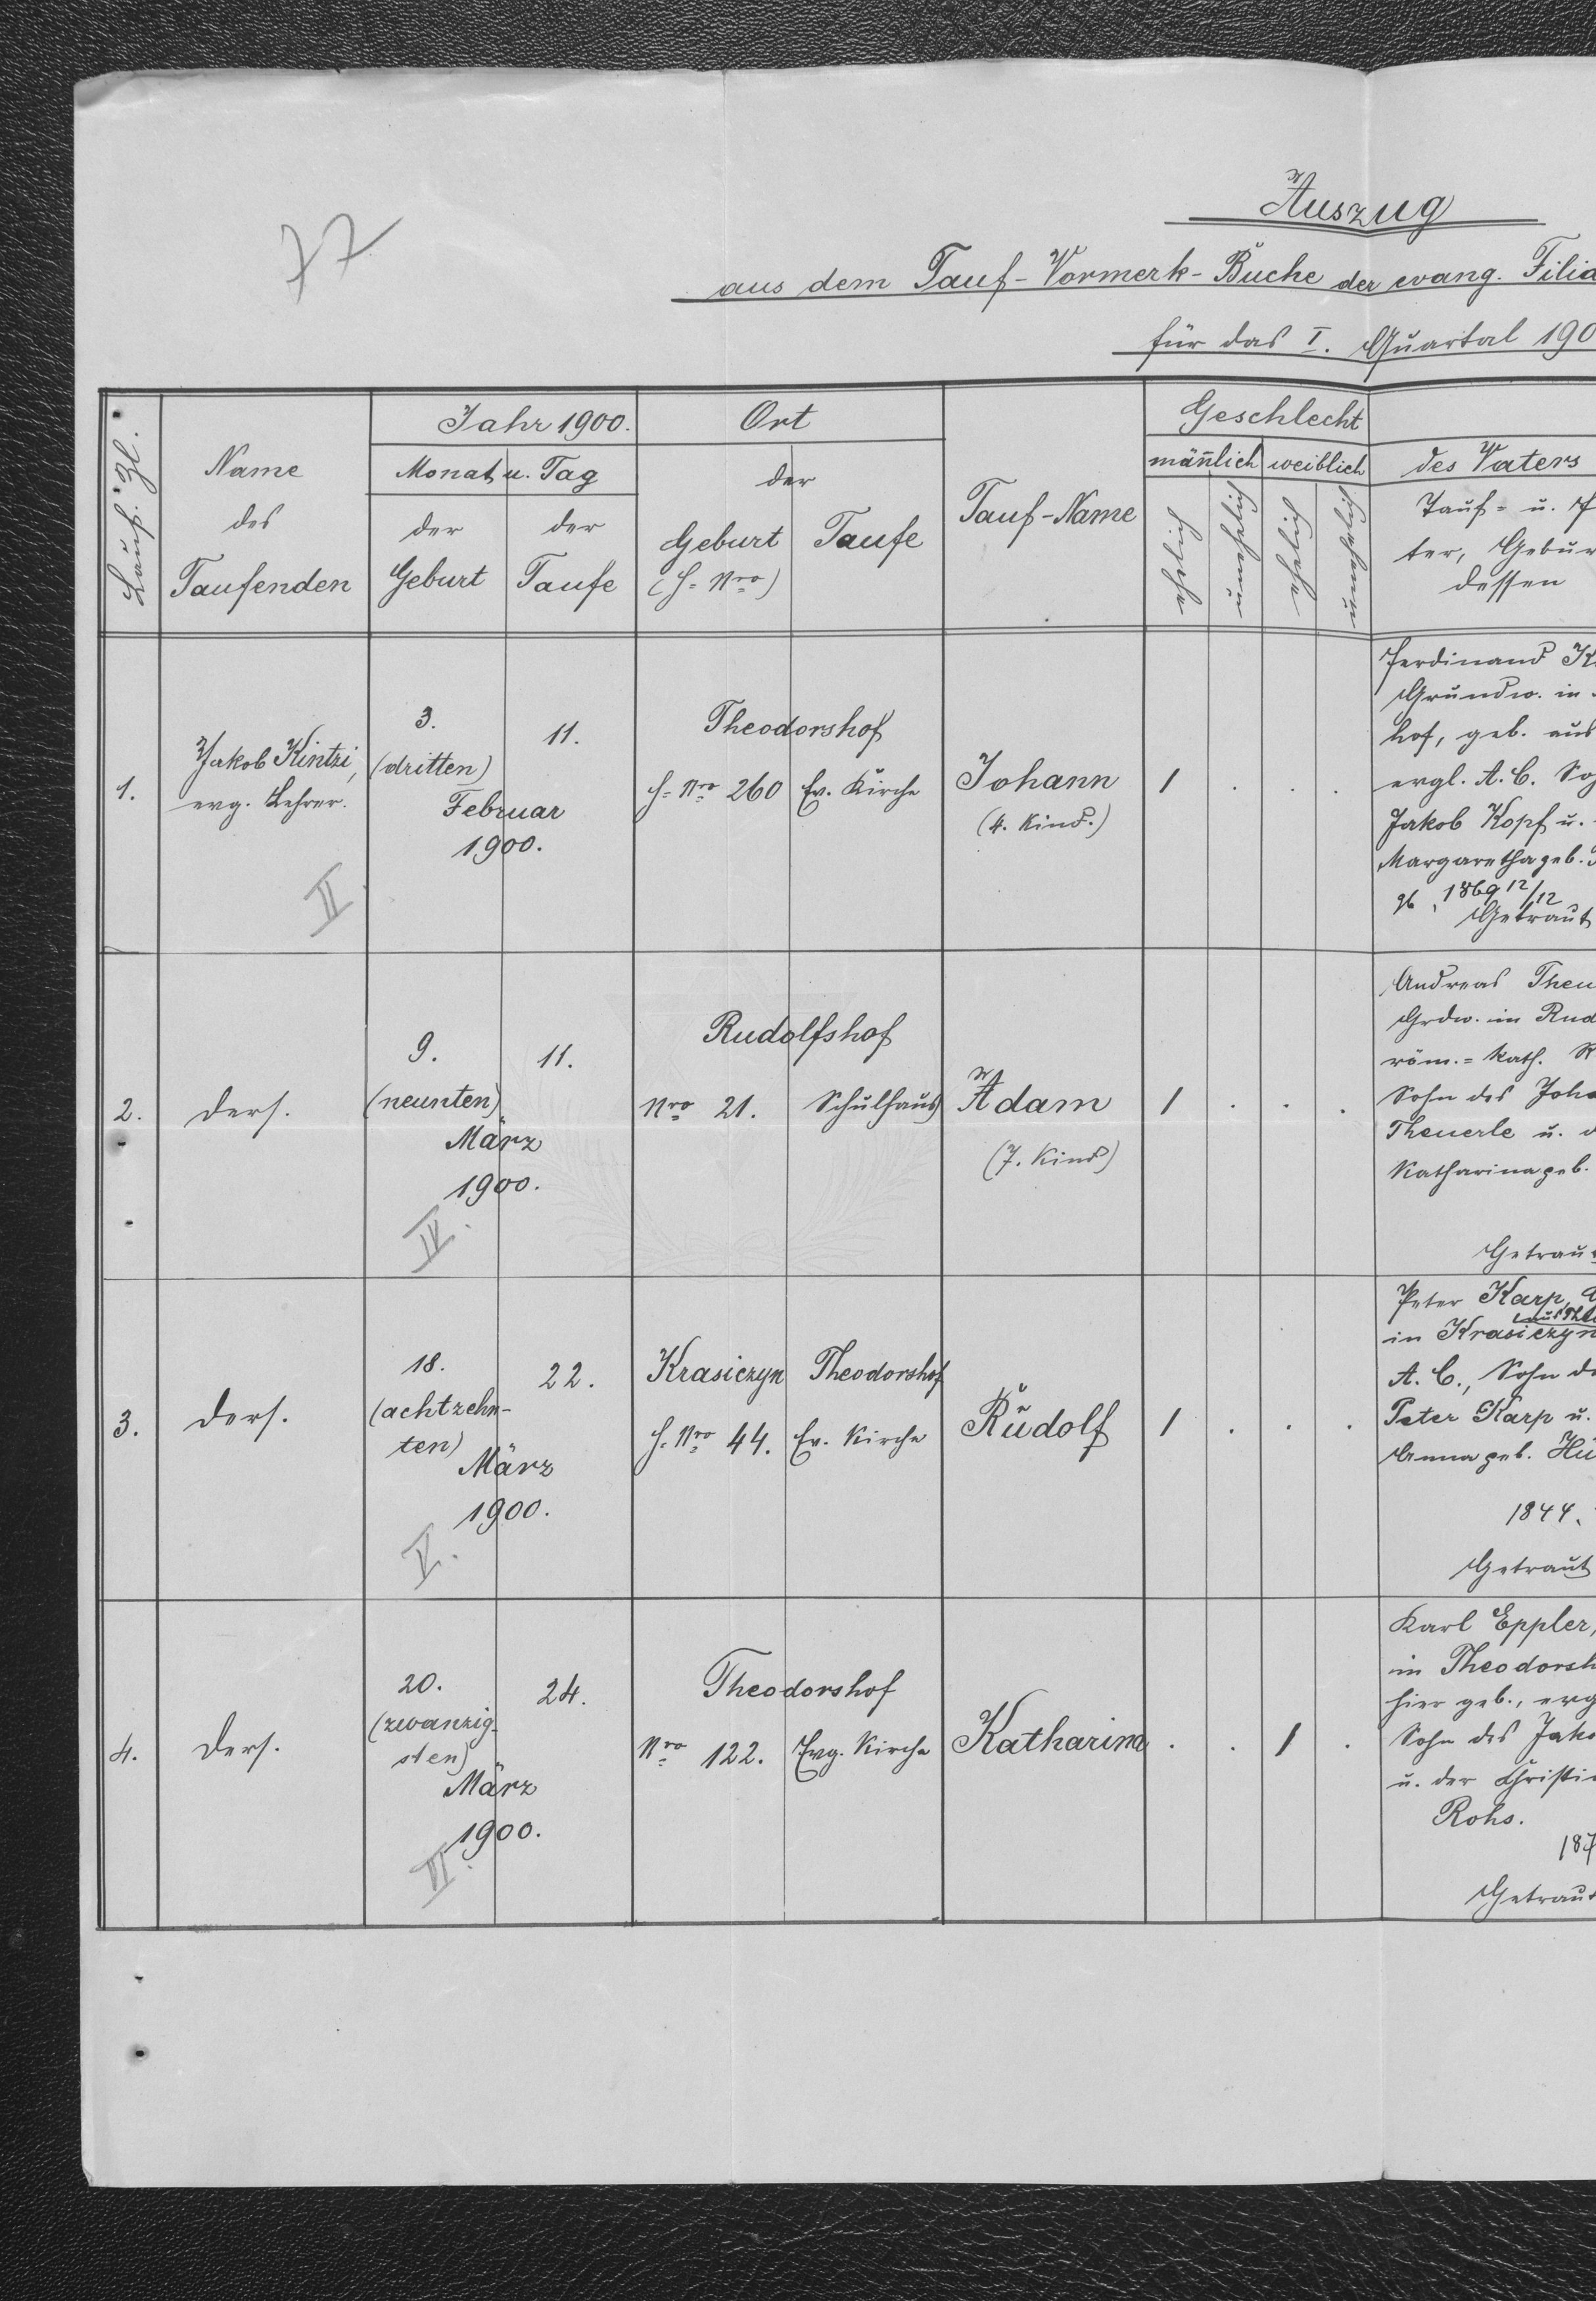 77
Auszug
aus dem Tauf-Vormerk-Buche der evang. Filia
für das I. Quartal 190
Lauf. Zl.
Name
des
Taufenden
Jahr 1900.
Monat u. Tag
der
Geburt
der
Taufe
Ort
der
Geburt
(H-Nro)
Taufe
Tauf-Name
Geschlecht
männlich
weiblich
ehelich
unehelich
ehelich
unehelich
des Vaters
Tauf- u.
ter, Gebur
dessen
1.
Jakob Kintzi,
evg. Lehrer.
II.
3.
(dritten)
11.
Februar
1900.
Theodorshof
H-Nro 260
Ev. Kirche
Johann
(4. Kind.)
1 . . .
Ferdinand K
Grundw. in
hof, geb. aus
evgl. A. C. So
Jakob Kopf u.
Margaretha geb.
1869 12/12
Getraut
2.
ders.
9.
(neunten)
11.
März
1900.
IV.
Rudolfshof
Nro 21.
Schulhaus
Adam
(7. Kind)
1 . . .
Andreas Theu
Grdw. in Rud
röm.-kath. R
Sohn des Joha
Theuerle u. d
Katharina geb.
Getraut
3.
ders.
18.
(achtzehn-
ten)
22.
März
1900.
V.
Krasiczyn
H-Nro 44.
Theodorshof
Ev. Kirche
Rudolf
1 . . .
Peter Karp,
in Krasiczyn
A. C., Sohn de
Peter Karp u.
Anna geb. Hü
1844.
Getraut
4.
ders.
20.
(zwanzig-
sten)
24.
März
1900.
VI.
Theodorshof
Nro 122.
Evg. Kirche
Katharina
. . 1 .
Karl Eppler,
in Theodorsh
hier geb., evg
Sohn des Jako
u. der Christi
Rohs.
187
Getraut